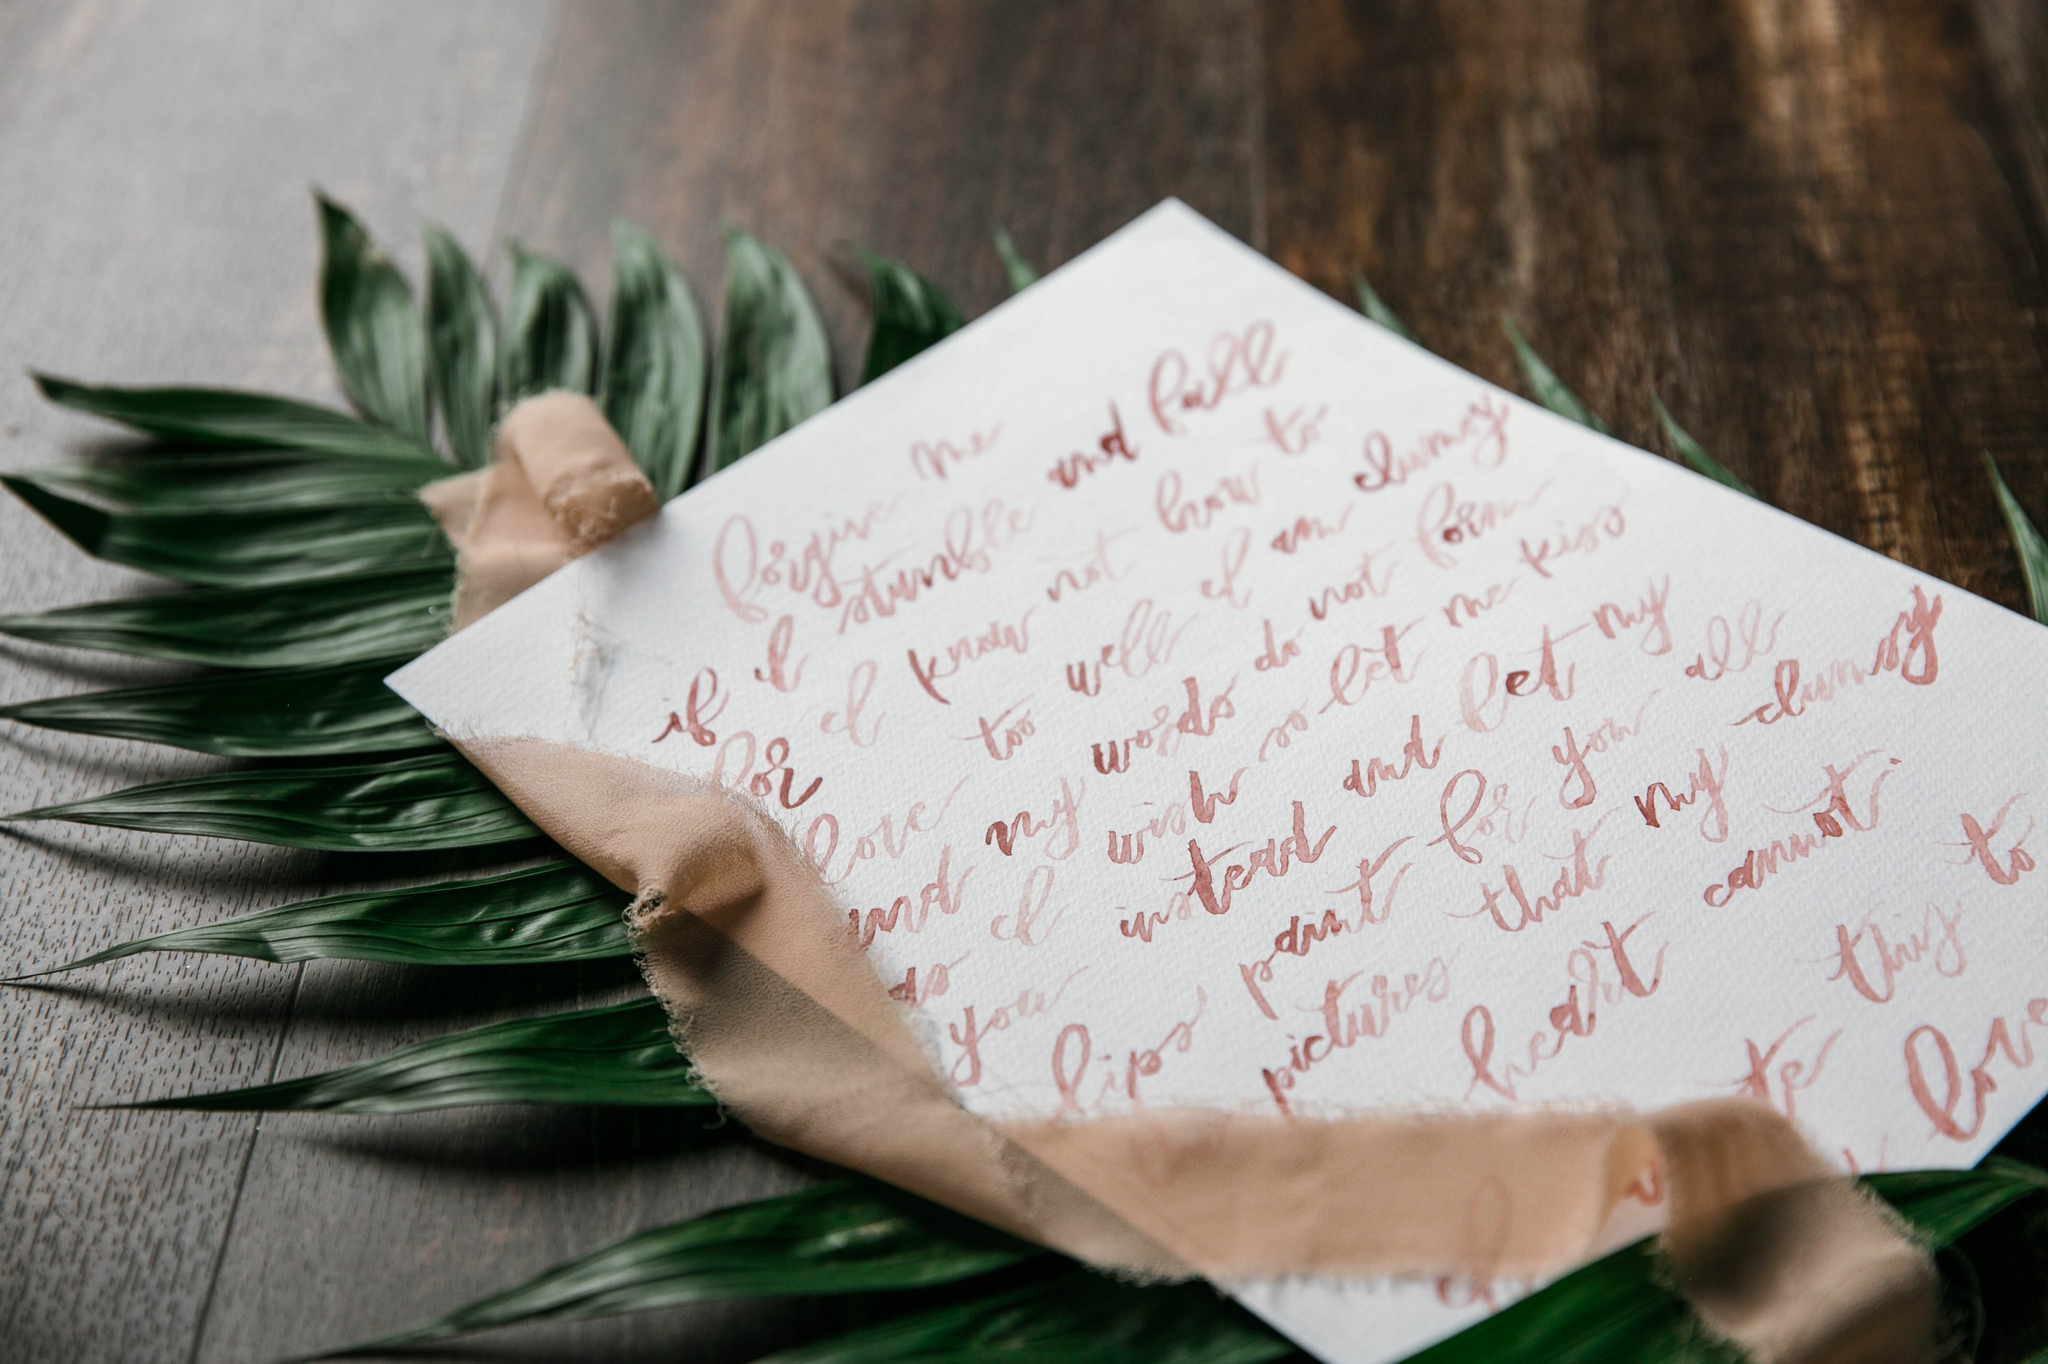 forgive me
if I stumble and fall
for I know not how to
love too well I am clumsy
and my words do not form
as I wish so let me kiss
you instead and let my
lips paint for you all
pictures that my clumsy
heart cannot.
this to
love